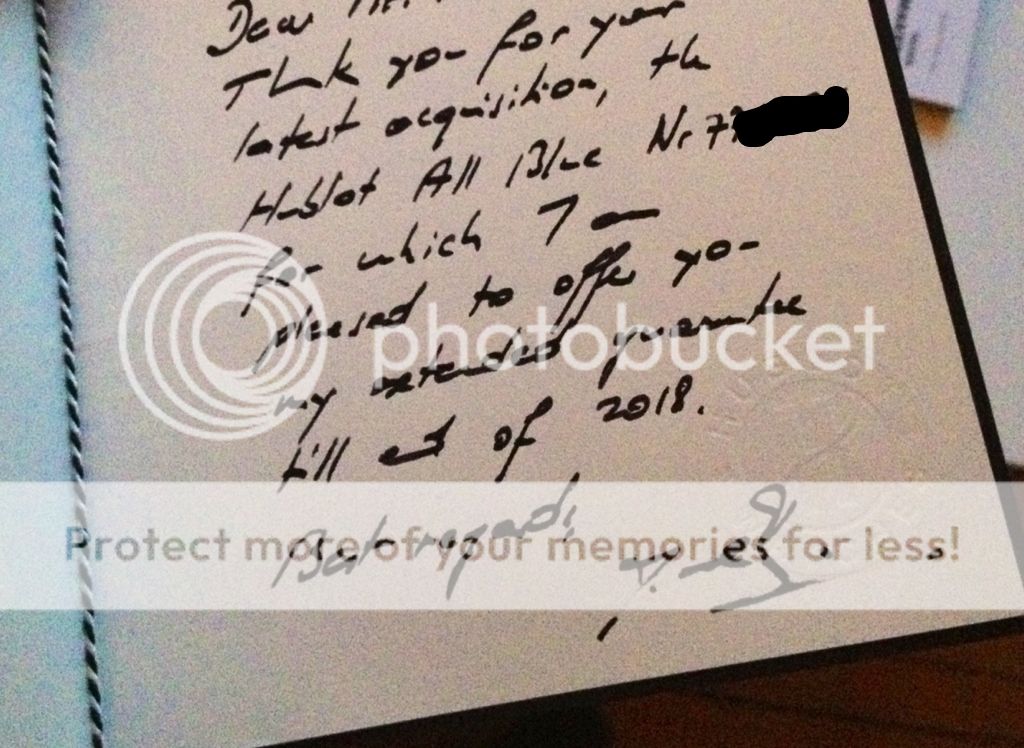 Dear
Thank you for your
latest acquisition, the
Hublot All Blue Nr 77
for which I am
pleased to offer you
my extended guarantee
till end of 2018.
Best regards,
photobucket
Protect more of your memories for less!